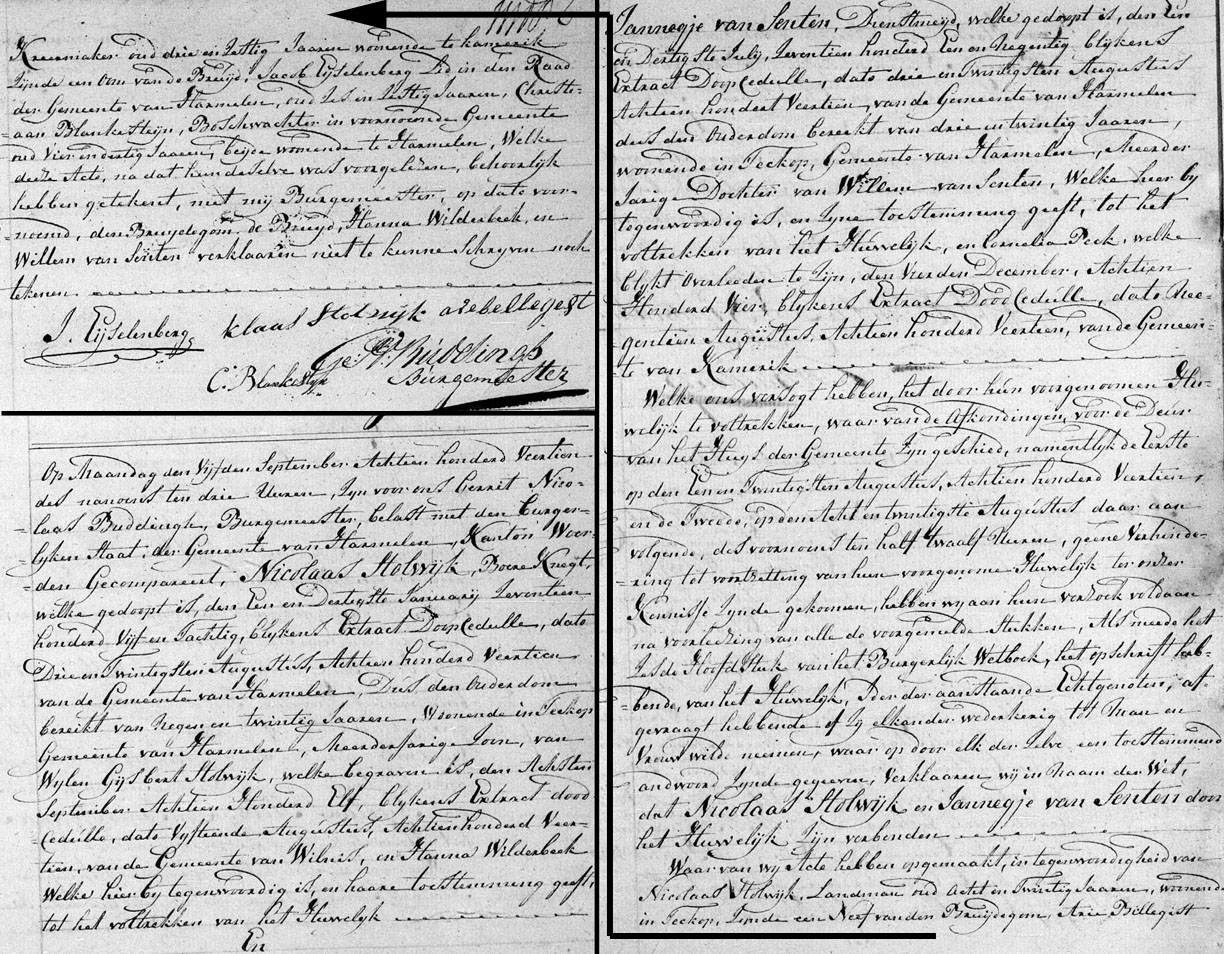 Op Maandag den Vijfden September Achtien honderd Veertien
des namiddags ten drie Uuren, Zyn voor ons Gerrit Nico-
=laas Buddingh, Burgemeester, belast met den Burger-
=lyken Staat, der Gemeente van Harmelen, Kanton Woer-
den Gecompareert, Nicolaas Stolwijk, Boere Knegt,
welke gedoopt is, den Een en Dertigste Januarij Zeventien
honderd Vijf en Tachtig, blykens Extract DoopCedulle, dato
Drie en Twintigsten Augustus, Achtien honderd Veertien
van de Gemeente van Harmelen, Dus den Ouderdom
bereikt van Negen en twintig Jaaren, Woonende in Teckop
Gemeente van Harmelen, Meerderjarige Zoon, van
Wylen Gijsbert Stolwijk, welke begraven is, den Achsten
September Achtien Honderd Elf, blykens Extract dood
Cedulle, dato Vyftiende Augustus, Achtien honderd Veer-
tien, van de Gemeente van Wilnis, en Hanna Wilderbeek
Welke hier by tegenwoordig is, en haare toestemming geeft,
tot het voltrekken van het Huwelyk
En
Jannegje van Senten, Dienstmeijd, welke gedoopt is, den Een
en Dertigste July, Zeventien honderd Een en Negentig blykens
Extract DoopCedulle, dato drie en Twintigsten Augustus
Achtien hondert Veertien, van de Gemeente van Harmelen
dus den Ouderdom bereikt van drie en twintig Jaaren,
woonende in Teckop, Gemeente van Harmelen, Meerder
Jarige Dochter van Willem van Senten, Welke hier by
tegenwoordig is, en Zyne toestemming geeft, tot het
voltrekken van het Huwelyk, en Cornelia Peek, welke
blykt Overleeden te Zyn, den Vierden December, Achtien
Honderd Vier, blykens Extract DoodCedulle, dato Nee-
gentien Augustus, Achtien honderd Veertien, van de Gemeen-
te van Kamerik
Welke ons versogt hebben, het door hun voorgenoomen Hu-
welijk te voltrekken, waar van de Afkondingen, voor de Deur
van het Huys der Gemeente Zyn geschied, namentlijk de Eerste
op den Een en Twintigsten Augustus, Achtien honderd Veertien,
en de Tweede, op den Acht en twintigste Augustus daar aan
volgende, des voornoens ten half Twaalf Uuren, geene Verhinde-
=ring tot voortzetting van hun voorgenome Huwelijk ter onzer
Kennisse Zynde gekoomen, hebben wy aan hun verzoek voldaan
na voorleezing van alle de voorgemelde stukken, Als meede het
Zesde Hoofdstuk van het Burgerlijk Wetboek, het opschrift heb-
=bende, van het Huwelijk, Ider der aanstaande Echtgenoten, af-
gevraagt hebbende of Zy elkander wederkerig tot Man en
Vrouw wilde neemen, waar op door elk der Zelve een toestemmend
andwoord Zynde gegeeven, Verklaaren wij in Naam der Wet,
dat Nicolaas Stolwijk en Jannegje van Senten door
het Huwelijk Zijn verbonden
Waar van wy Acte hebben opgemaakt, in tegenwoordigheid van
Nicolaas Stolwijk, Landman oud Acht en Twintig Jaaren, woonende
in Teckop, Zynde een Neef van den Bruijdegom, Arie Bellegist
Kleermaker oud drie en Zestig Jaaren woonende te Kamerik
Zijnde een Oom van de Bruijd, Jacob Eijselenberg Lid in den Raad
der Gemeente van Harmelen, oud Zes in Zestig Jaaren, Christi-
=aan Blankesteijn, Boschwachter in voornoemde Gemeente
oud Vier en dertig Jaaren, beijde woonende te Harmelen, Welke
deeze Acte, na dat hun dezelve was voorgeleezen, behoorlijk
hebben getekent, met mij Burgemeester, op dato voor-
=noemd, den Bruydegom, de Bruyd, Hanna Wilderbeek, en
Willem van Senten verklaaren niet te kunne Schryven noch
tekenen
J. Eijselenberg klaas Stolwijk a rebellegest
C. Blankesteijn G. N. Buddingh
Burgemeester